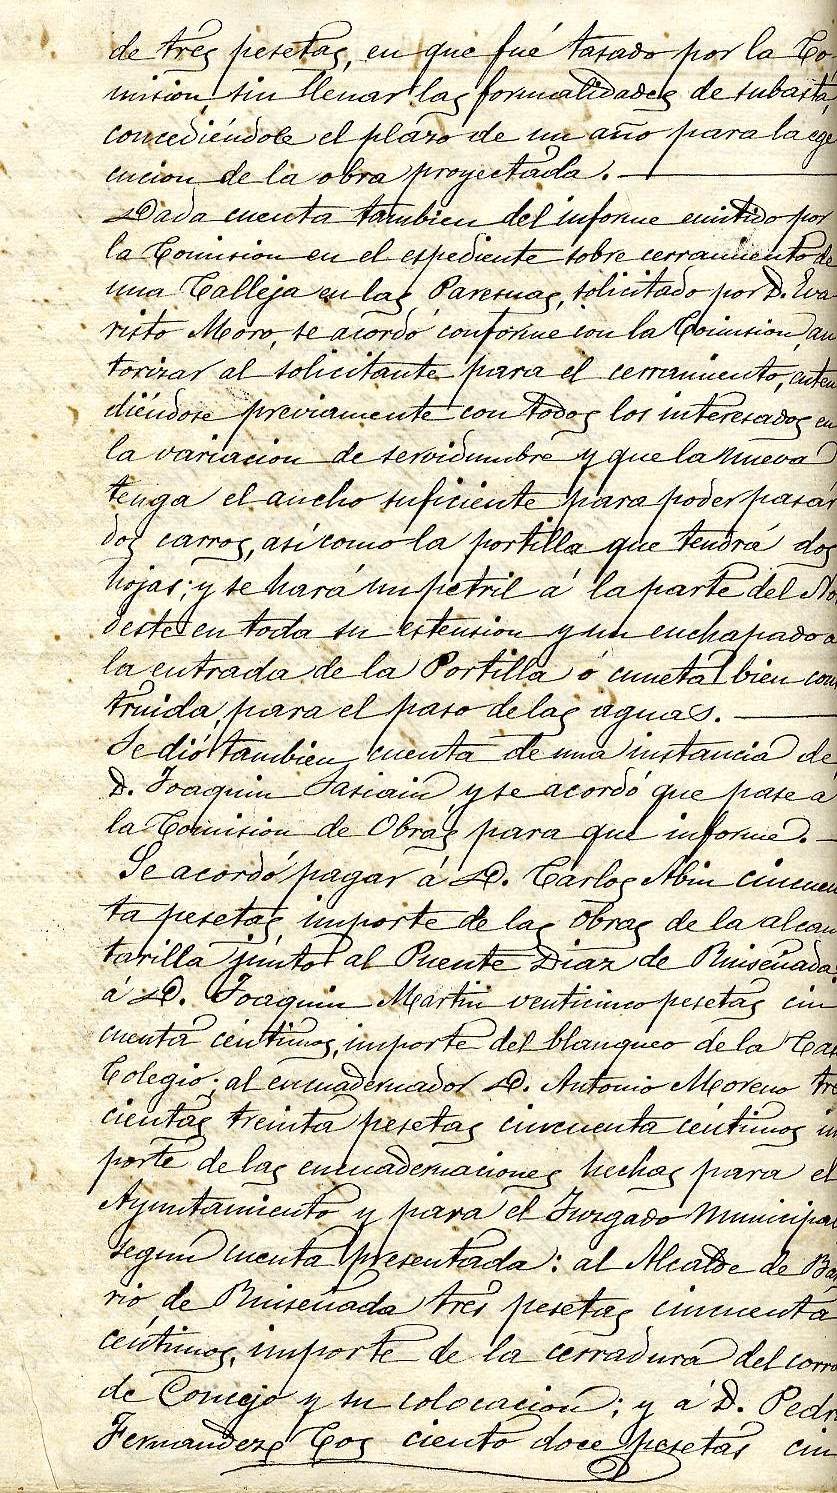 de tres pesetas, en que fué tasado por la Co-
mision, sin llenar las formalidades de subasta,
concediéndole el plazo de un año para la ege
cucion de la obra proyectada.
Dada cuenta tambien del informe emitido por
la Comision en el espediente sobre cerramiento de
una Calleja en las solicitado por D. Eva-
risto Moro, se acordó conforme con la Comision, au
torizar al solicitante para el cerramiento, enten
diéndose previamente con todos los interesados en
la variacion de servidumbre y que la nueva
tenga el ancho suficiente para poder pasar
dos carros, así como la portilla que tendrá dos
hojas; y se hará un petril á la parte del No
deste en toda su estension y un enchapado a
la entrada de la Portilla ó cuneta bien cons
truida, para el paso de las aguas.
Se dió tambien cuenta de una instancia de
D. Joaquin Sasiain y se acordó que pase a
la Comision de Obras para que informe.
Se acordó pagar á D. Carlos Abin cincuen
ta pesetas, importe de las obras de la alcan
tarilla junto al Puente Diaz de Ruiseñada:
á D. Joaquin Martin venticinco pesetas cin
cuenta céntimos, importe del blanqueo de la Cas
Colegio; al encuadernador D. Antonio Moreno tre
cientas treinta pesetas cincuenta céntimos im
porte de las encuadernaciones hechas para el
Ayuntamiento y para el Juzgado Municipal
segun cuenta presentada: al Alcalde de Bar
rio de Ruiseñada tres pesetas cincuenta
céntimos, importe de la cerradura del corro
de Concejo y su colocacion; y á D. Pedr
Fernandez Cos ciento doce pesetas cin